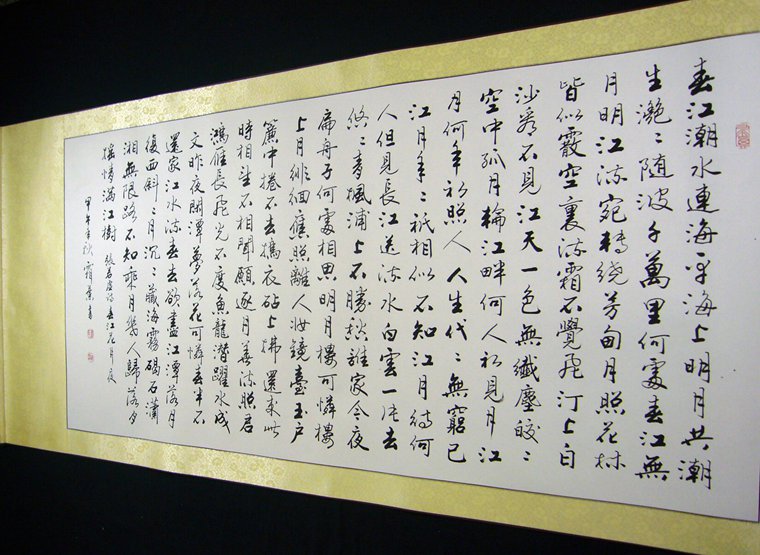 春江潮水連海平海上明月共潮
生灧〻隨波千萬里何處春江無
月明江流宛轉繞芳甸月照花林
皆似霰空裏流霜不覺飛汀上白
沙看不見江天一色無纖塵皎〻
空中孤月輪江畔何人初見月江
月何年初照人人生代〻無窮已
江月年〻祇相似不知江月待何
人但見長江送流水白雲一片去
悠〻青楓浦上不勝愁誰家今夜
扁舟子何處相思明月樓可憐樓
上月徘徊應照離人妝鏡臺玉户
簾中捲不去搗衣砧上拂還來此
時相望不相聞願逐月華流照君
鴻雁長飛光不度魚龍潛躍水成
文昨夜閑潭夢落花可憐春半不
還家江水流春去欲盡江潭落月
復西斜〻月沉〻藏海霧碣石瀟
湘無限路不知乘月幾人歸落月
摇情滿江樹 張若虚詩春江花月夜
甲午年秋 霜葉書